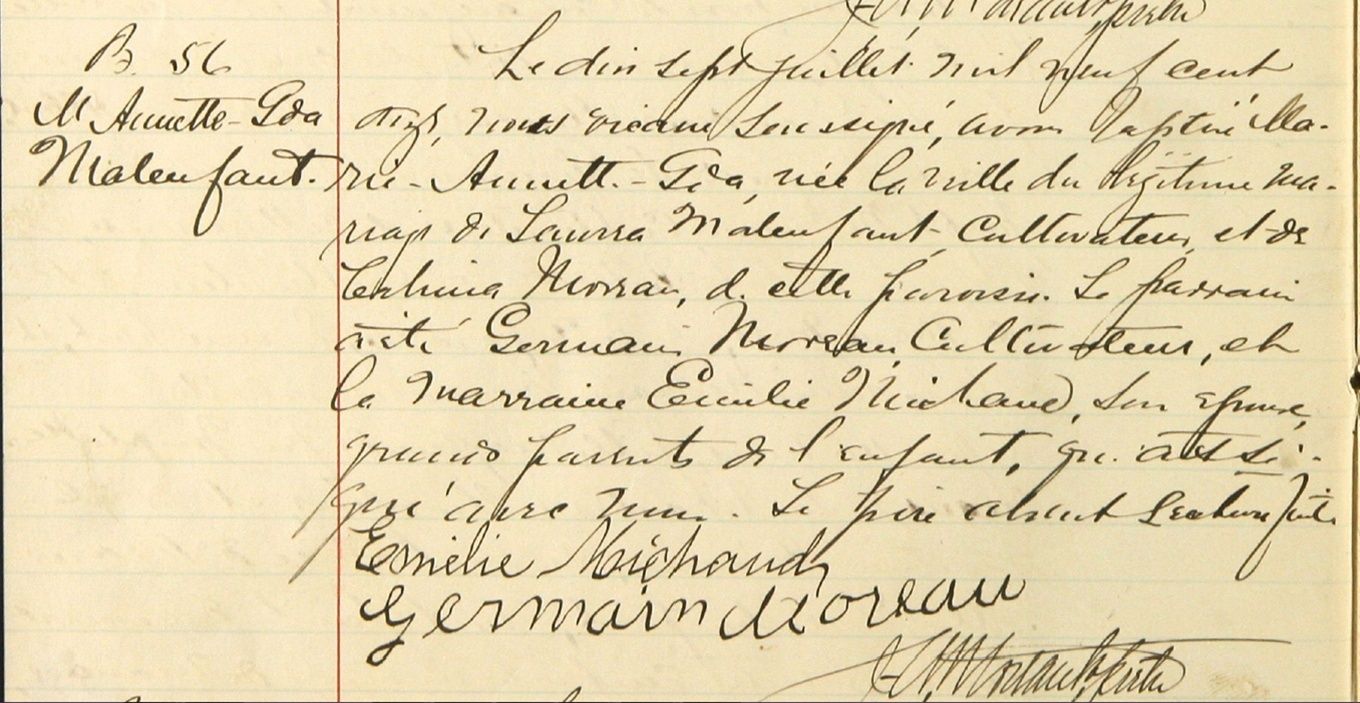 B. 56
M. Annette-Gda
Malenfant.
Le dix sept juillet mil neuf cent
onze, nous vicaire soussigné, avons baptisé Ma-
rie-Annette-Gda, née la veille du légitime ma-
riage de Malenfant, Cultivateur, et de
Moreau, de cette paroisse. Le parrain
a été Germain Moreau, Cultivateur, et
la marraine Emilie Michaud, son épouse,
grands parents de l'enfant, qui ont si-
gné avec nous. Le père absent Lecture faite
Emélie Michaud
Germain Moreau
ptre